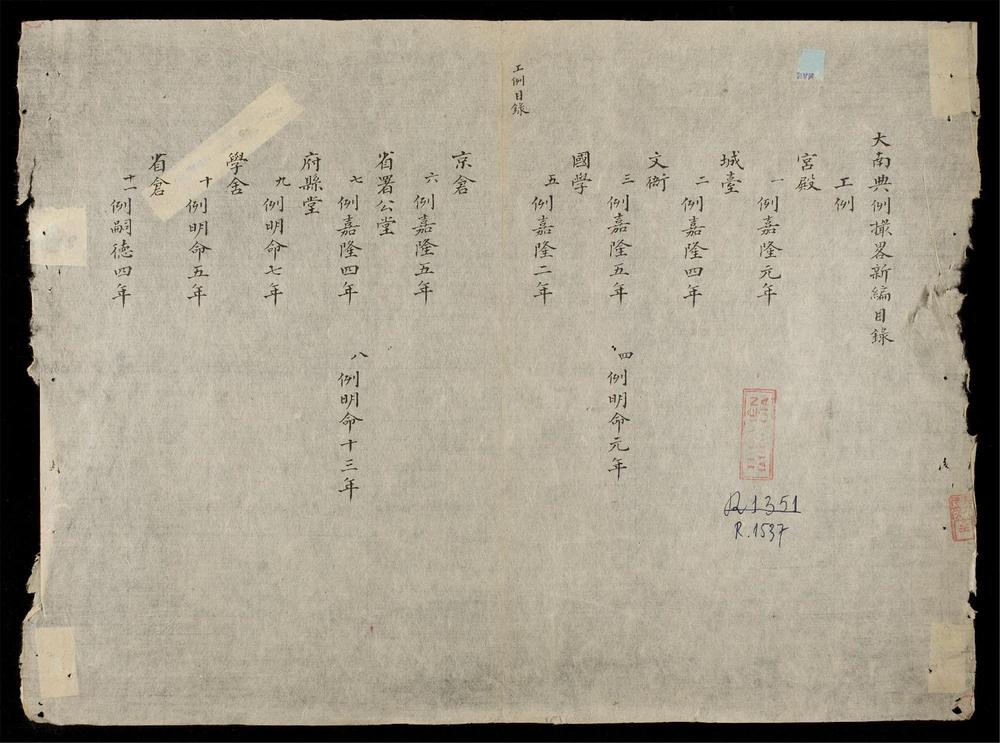 大南典例撮畧新編目錄
工例
宮殿
一 例嘉隆元年
城臺
二 例嘉隆四年
文衙
三 例嘉隆五年 四 例明命元年
國學
五 例嘉隆二年
工例目錄
京倉
六 例嘉隆五年
省署公堂
七 例嘉隆四年 八 例明命十三年
府縣堂
九 例明命七年
學舍
十 例明命五年
省倉
十一 例嗣德四年
R1351
R.1537